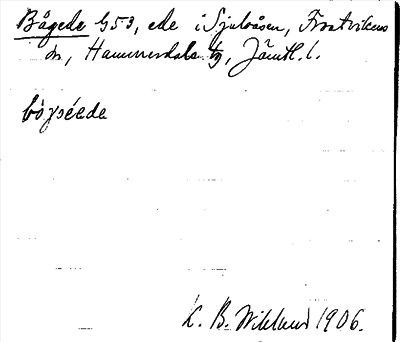 Bågede 453, ede i Sjulsåsen, Frostvikens
sn, Hammerdals tg, Jämtl. l.
bòγséede
K. B. Wiklund 1906.